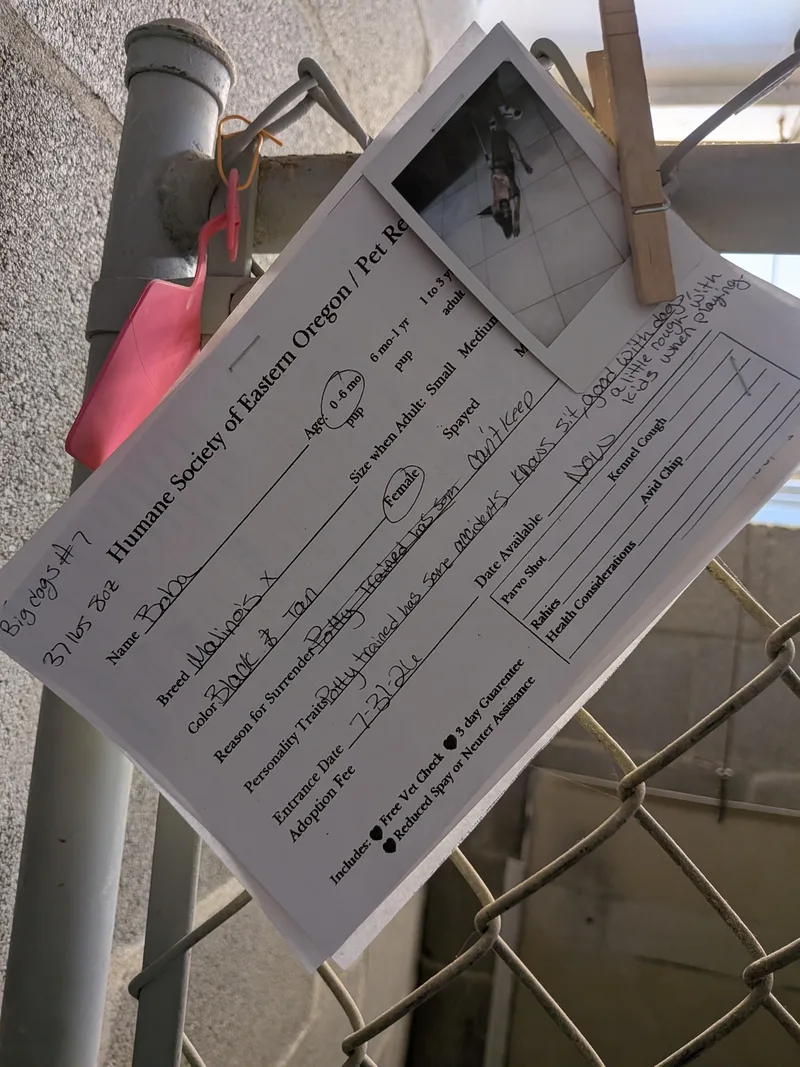 Big dogs #7
37 lbs 8oz
Humane Society of Eastern Oregon / Pet Re
Name Baba Age: 0-6 mo pup 6 mo-1 yr pup 1 to 3 y adult
Breed Malinois x Size when Adult: Small Medium
Color Black & Tan Female Spayed M
Reason for Surrender Potty trained has som can't keep
Personality Traits Potty trained has some accidents knows sit, good with dogs,
a little rough with
kids when playing.
Entrance Date 7-31-26 Date Available Now
Adoption Fee
Parvo Shot Kennel Cough
Rabies Avid Chip
Health Considerations
Includes: Free Vet Check 3 day Guarentee
Reduced Spay or Neuter Assistance